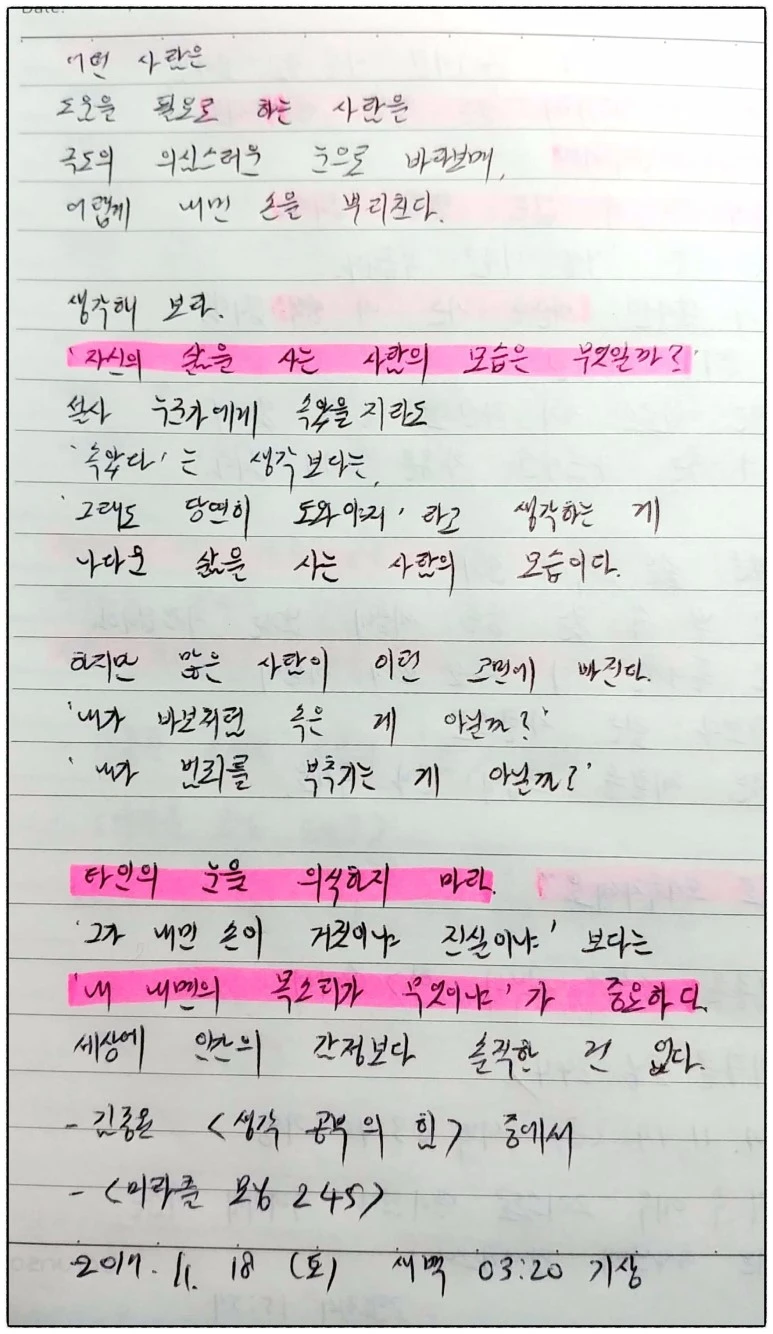 Date:
어떤 사람은
도움을 필요로 하는 사람을
극도의 의심스러운 눈으로 바라보며,
어렵게 내민 손을 뿌리친다.
생각해 보라.
'자신의 삶을 사는 사람의 모습은 무엇일까?'
설사 누군가에게 속았을지라도
'속았다'는 생각보다는,
'그래도 당연히 도와야지' 라고 생각하는 게
나다운 삶을 사는 사람의 모습이다.
하지만 많은 사람이 이런 고민에 빠진다.
'내가 바보처럼 속은 게 아닐까?'
'내가 범죄를 부추기는 게 아닐까?'
타인의 눈을 의식하지 마라.
'그가 내민 손이 거짓이냐 진실이냐' 보다는
'내 내면의 목소리가 무엇이냐'가 중요하다.
세상에 인간의 감정보다 솔직한 건 없다.
- 김종원 <생각 공부의 힘> 중에서
- <미라클 모닝 245>
2017. 11. 18 (토) 새벽 03:20 기상